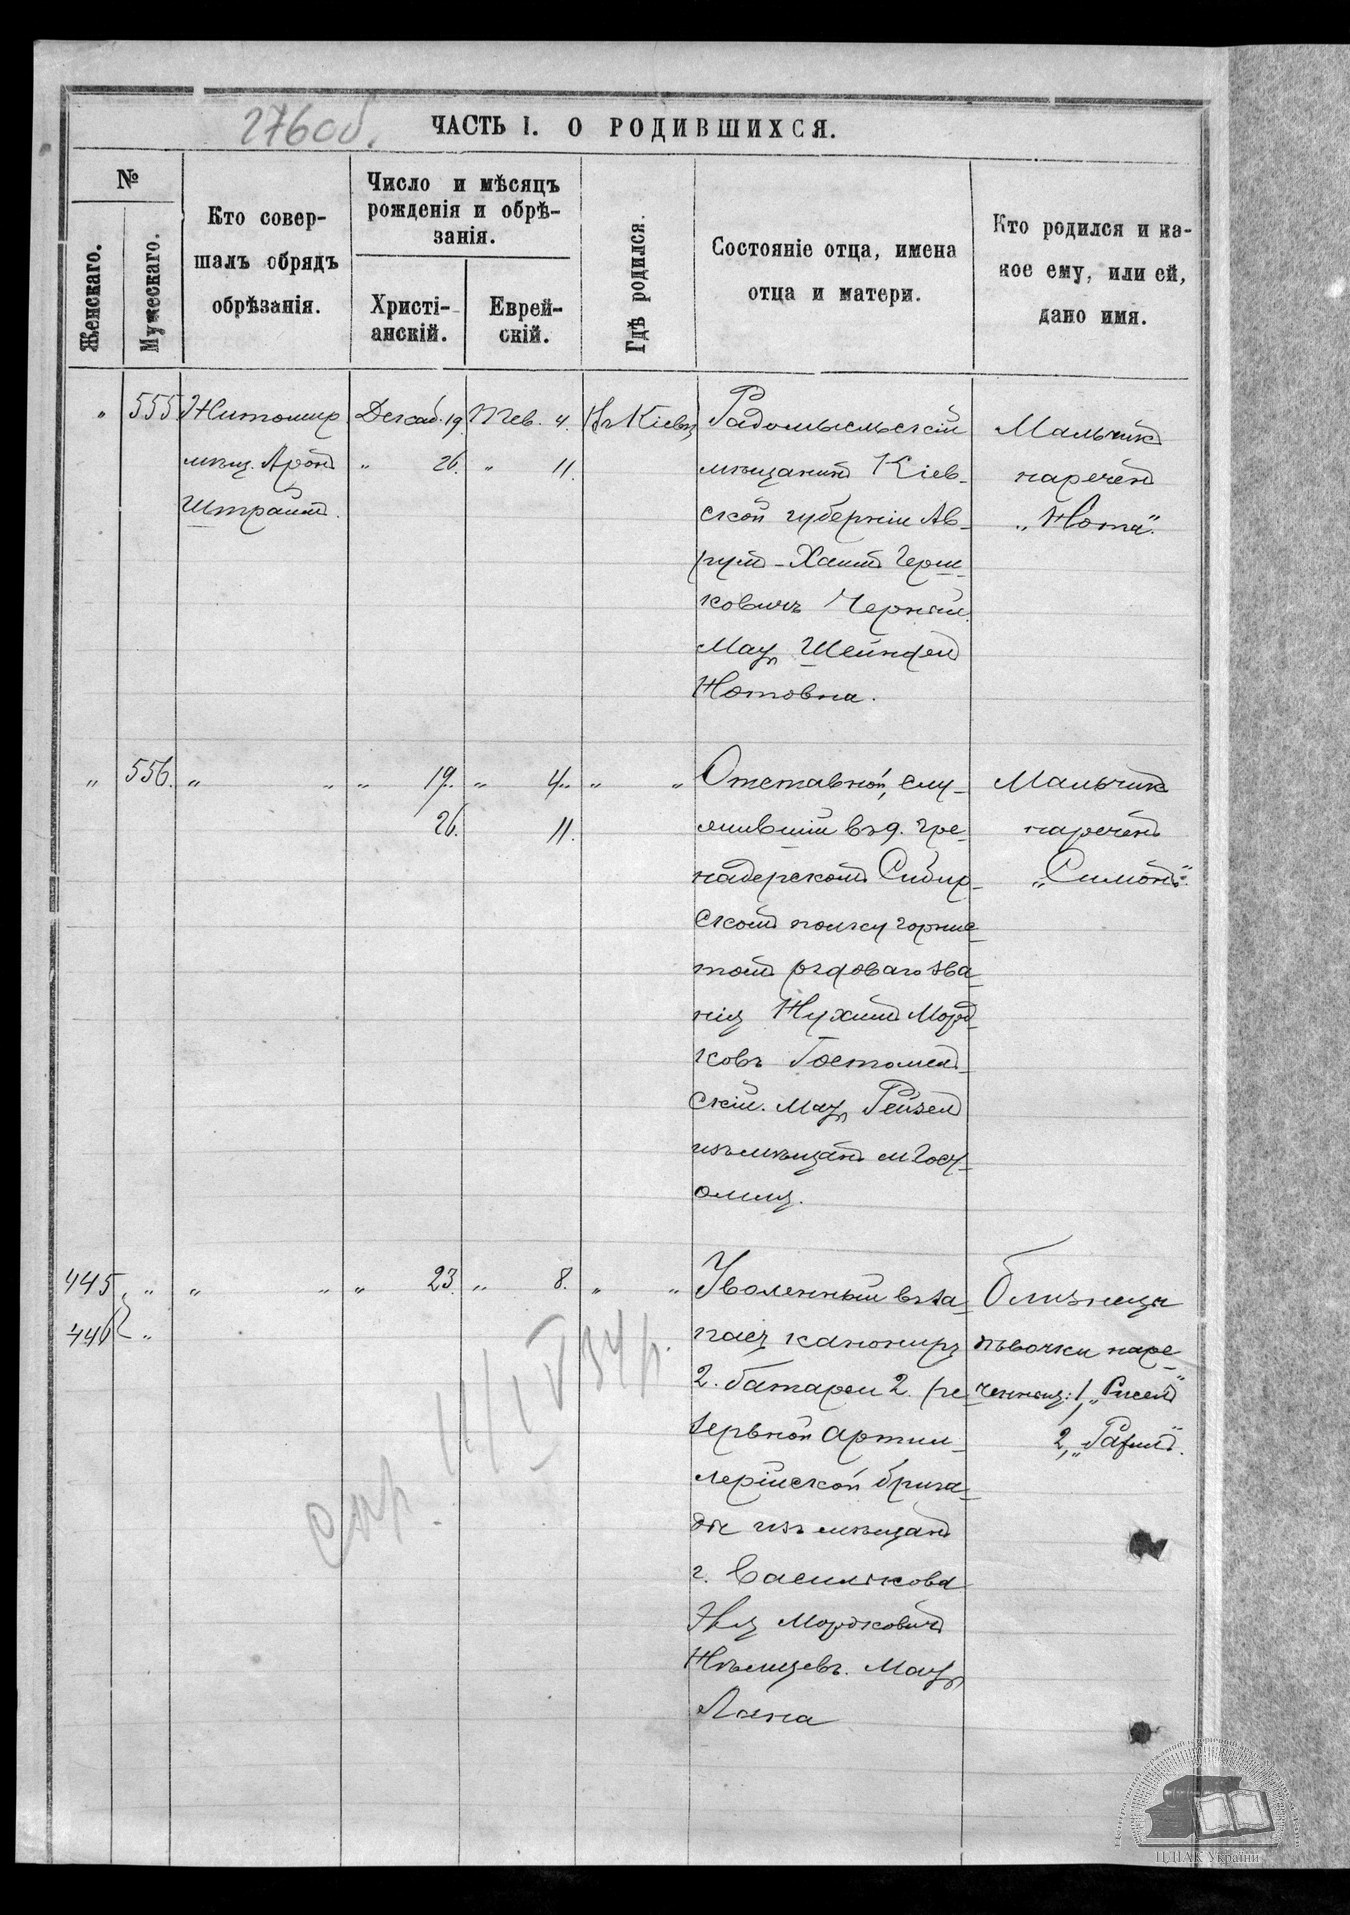 276 об.
ЧАСТЬ I. О РОДИВШИХСЯ.
№
Женскаго.
Мужескаго.
Кто совер-
шалъ обрядъ
обрѣзанія.
Число и мѣсяцъ
рожденія и обрѣ-
занія.
Христі-
анскій.
Еврей-
скій.
Гдѣ родился.
Состояніе отца, имена
отца и матери.
Кто родился и ка-
кое ему, или ей,
дано имя.
" 555 Житомир. Декаб. 19. Тев. 4. Въ Кіевѣ
мѣщ. Аронъ " 26. " 11.
Штраимъ.
Радомысльскій
мѣщанинъ Кіев-
ской губерніи Ав-
румъ-Хаимъ Герш-
ковичъ Черный.
Мать Шейндел
Нотовна.
Мальчикъ
нареченъ
„Нота".
" 556. " " " 19. " 4. " "
26. 11.
Отставной, слу-
жившій въ 9. Гре-
надерскомъ Сибир-
скомъ полку горнис-
томъ рядоваго зва-
нія Нухимъ Морд-
ковъ Гостомель-
скій. Мать Рейзел
изъ мѣщанъ м Гост-
омля.
Мальчикъ
нареченъ
„Симонъ".
445. " " " " 23. " 8. " "
446 "
Уволенный въ за-
пасъ канониръ
2. батареи 2. ре-
зервной артил-
лерійской брига-
ды изъ мѣщанъ
г. Василькова
Мордковичъ
Мать
Близнецы
дѣвочки наре-
ченныя: 1, „Рисел"
2,
11/IV 34 р.
ЦДІАК України